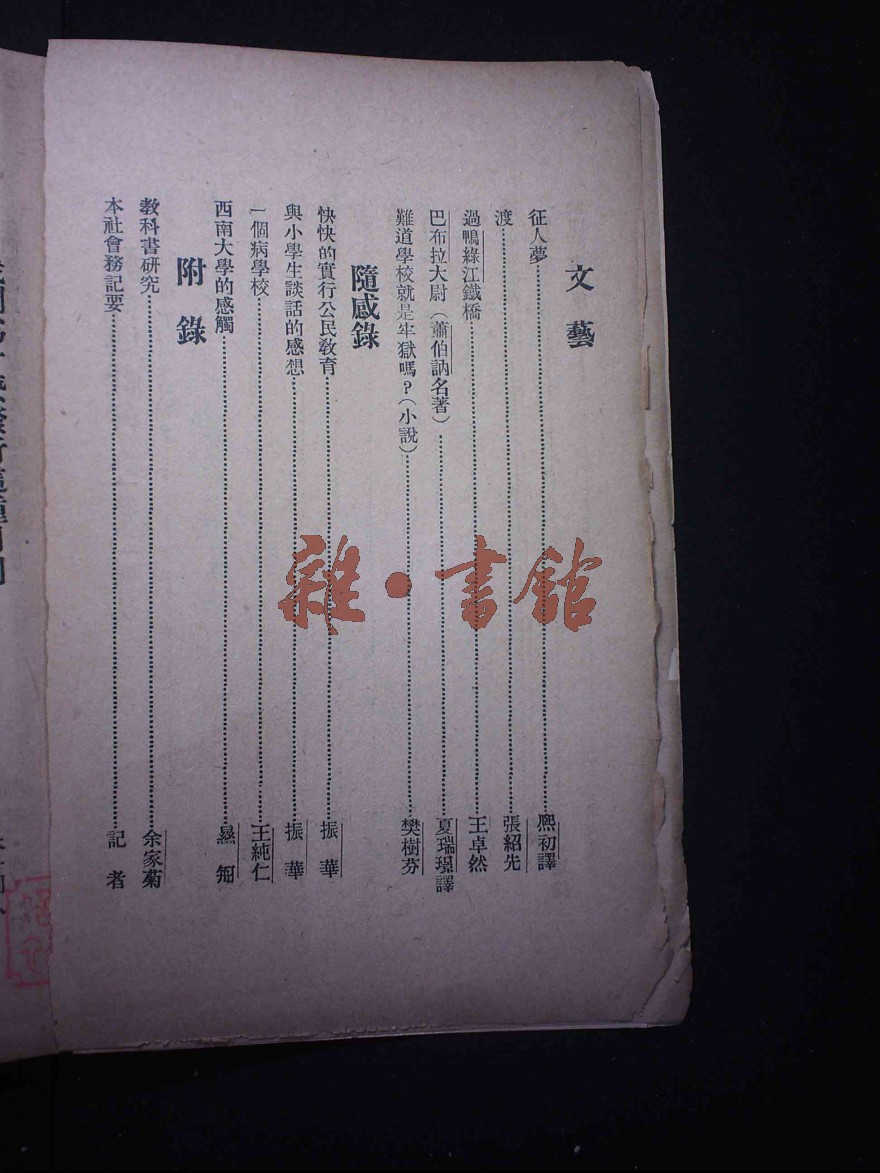 文藝
征人夢……熈初譯
渡……張紹先
過鴨綠江鐵橋……王卓然
巴布拉大尉(蕭伯訥名著)……夏瑞璟譯
難道學校就是牢獄嗎?(小說)……樊樹芬
隨感錄
快快的實行公民教育……振華
與小學生談話的感想……振華
一個病學校……王純仁
西南大學的感觸……
附錄
教科書研究……余家菊
本社會務記要……記者
雜·書館